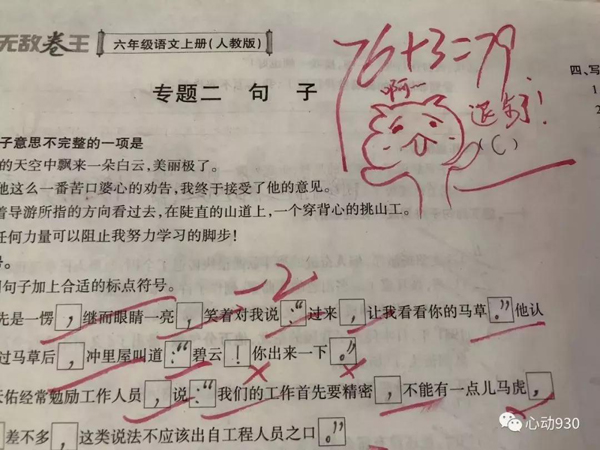 无敌卷王 六年级语文上册(人教版)
76+3=79
专题二 句 子
啊~
四、写
1
2
子意思不完整的一项是 (C)
的天空中飘来一朵白云,美丽极了。
他这么一番苦口婆心的劝告,我终于接受了他的意见。
着导游所指的方向看过去,在陡直的山道上,一个穿背心的挑山工。
任何力量可以阻止我努力学习的脚步!
号。
句子加上合适的标点符号。 -2
先是一愣,继而眼睛一亮,笑着对我说:“过来,让我看看你的马草。”他认
过马草后,冲里屋叫道:“碧云!你出来一下。”
天佑经常勉励工作人员,说:“我们的工作首先要精密,不能有一点儿马虎,
差不多,这类说法不应该出自工程人员之口。”
心动930